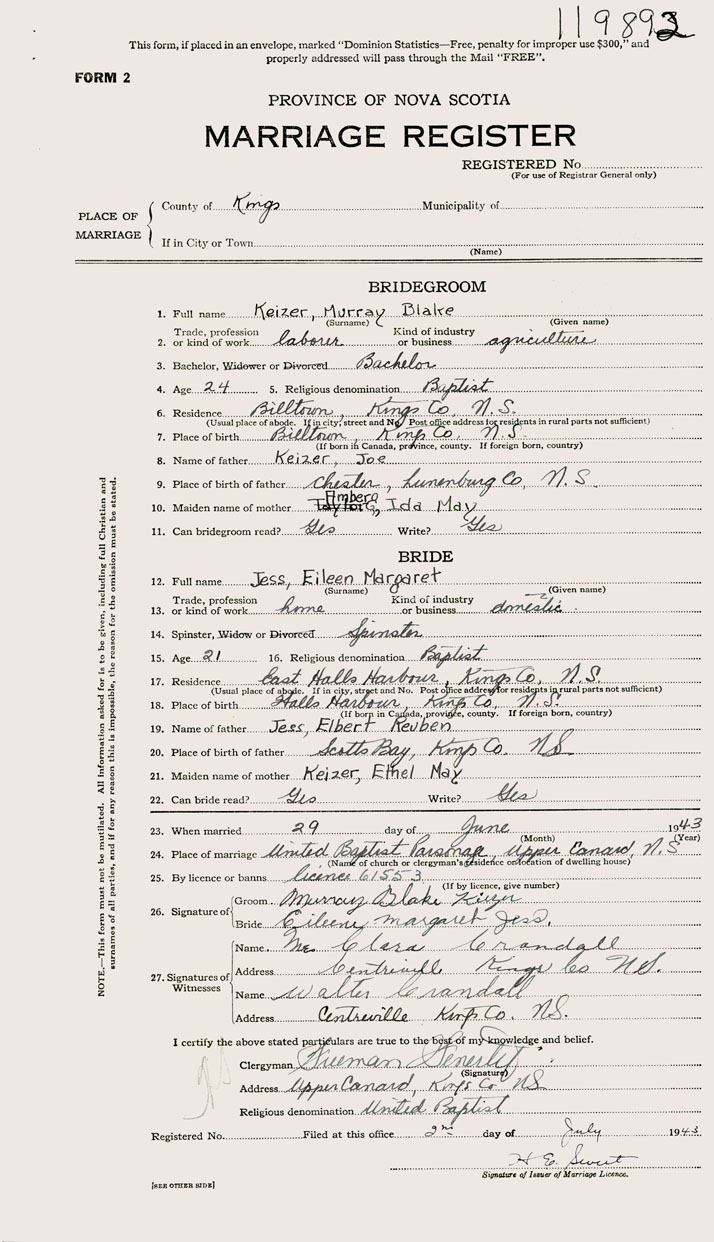 119893
This form, if placed in an envelope, marked “Dominion Statistics—Free, penalty for improper use $300,” and
properly addressed will pass through the Mail “FREE”.
FORM 2
PROVINCE OF NOVA SCOTIA
MARRIAGE REGISTER
REGISTERED No.
(For use of Registrar General only)
PLACE OF MARRIAGE
County of Kings Municipality of
If in City or Town
(Name)
BRIDEGROOM
1. Full name Keizer, Murray Blake
(Surname) (Given name)
2. Trade, profession or kind of work laborer Kind of industry or business agriculture
3. Bachelor, Widower or Divorced Bachelor
4. Age 24 5. Religious denomination Baptist
6. Residence Billtown, Kings Co, N.S.
(Usual place of abode. If in city, street and No. Post office address for residents in rural parts not sufficient)
7. Place of birth Billtown, Kings Co, N.S.
(If born in Canada, province, county. If foreign born, country)
8. Name of father Keizer, Joe
9. Place of birth of father Chester, Lunenburg Co, N.S.
10. Maiden name of mother Amberg, Ida May
11. Can bridegroom read? Yes Write? Yes
BRIDE
12. Full name Jess, Eileen Margaret
(Surname) (Given name)
13. Trade, profession or kind of work home Kind of industry or business domestic
14. Spinster, Widow or Divorced Spinster
15. Age 21 16. Religious denomination Baptist
17. Residence East Halls Harbour, Kings Co, N.S.
(Usual place of abode. If in city, street and No. Post office address for residents in rural parts not sufficient)
18. Place of birth Halls Harbour, Kings Co, N.S.
(If born in Canada, province, county. If foreign born, country)
19. Name of father Jess, Elbert Reuben
20. Place of birth of father Scotts Bay, Kings Co. NS
21. Maiden name of mother Keizer, Ethel May
22. Can bride read? Yes Write? Yes
23. When married 29 day of June 1943
(Month) (Year)
24. Place of marriage United Baptist Parsonage, Upper Canard, N.S
(Name of church or clergyman's residence or location of dwelling house)
25. By licence or banns licence 61553
(If by licence, give number)
26. Signature of
Groom Murray Blake Keizer
Bride Eileene Margaret Jess.
27. Signatures of Witnesses
Name Mrs Clara Crandall
Address Centreville Kings Co NS.
Name Walter Crandall
Address Centreville Kings Co. NS.
I certify the above stated particulars are true to the best of my knowledge and belief.
Clergyman Freeman Fenerty
(Signature)
Address Upper Canard, Kings Co NS
Religious denomination United Baptist
Registered No. Filed at this office 2nd day of July 1943
H E Sweet
Signature of Issuer of Marriage Licence.
[SEE OTHER SIDE]
NOTE.—This form must not be mutilated. All information asked for is to be given, including full Christian and
surnames of all parties, and if for any reason this is impossible, the reason for the omission must be stated.